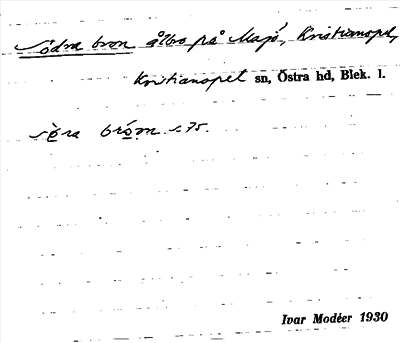 Södra bron ålbo på Magö, Kristianopel,
Kristianopel sn, Östra hd, Blek. l.
sę̀ra brǫ́ṃ s. 75.
Ivar Modéer 1930